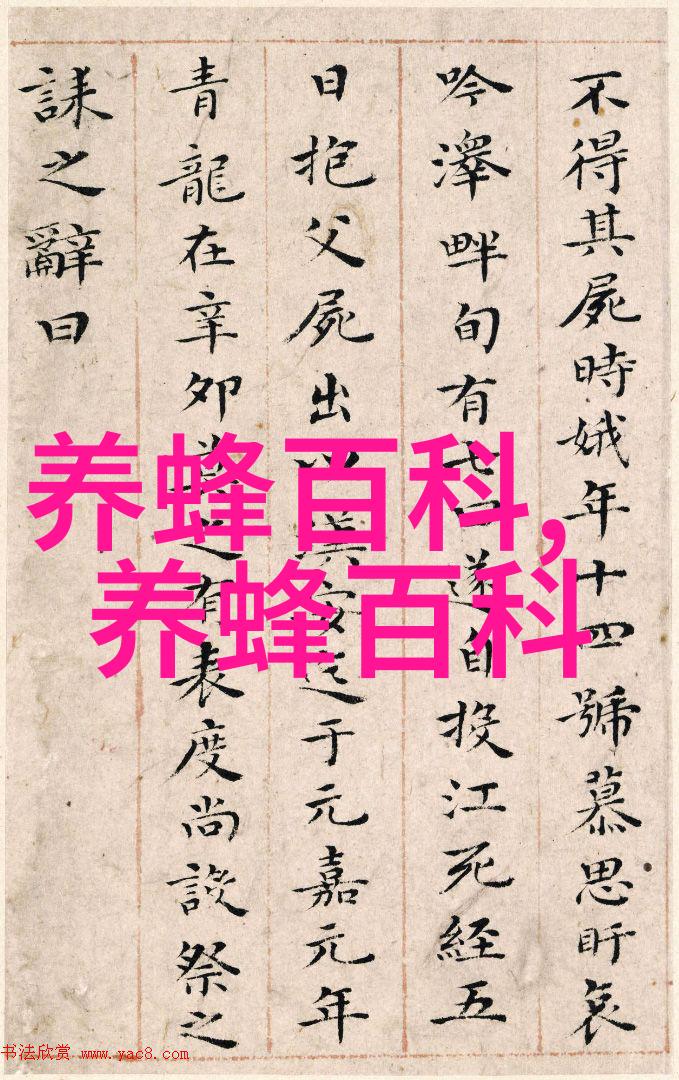 不得其屍時娥年十四號慕思盱哀
吟澤畔旬有七日遂自投江死經五
日抱父屍出以漢安迄于元嘉元年
青龍在辛卯莫之有表度尚設祭之
誄之辭曰
养蜂百科,
养蜂百科
书法欣赏 www.yac8.com